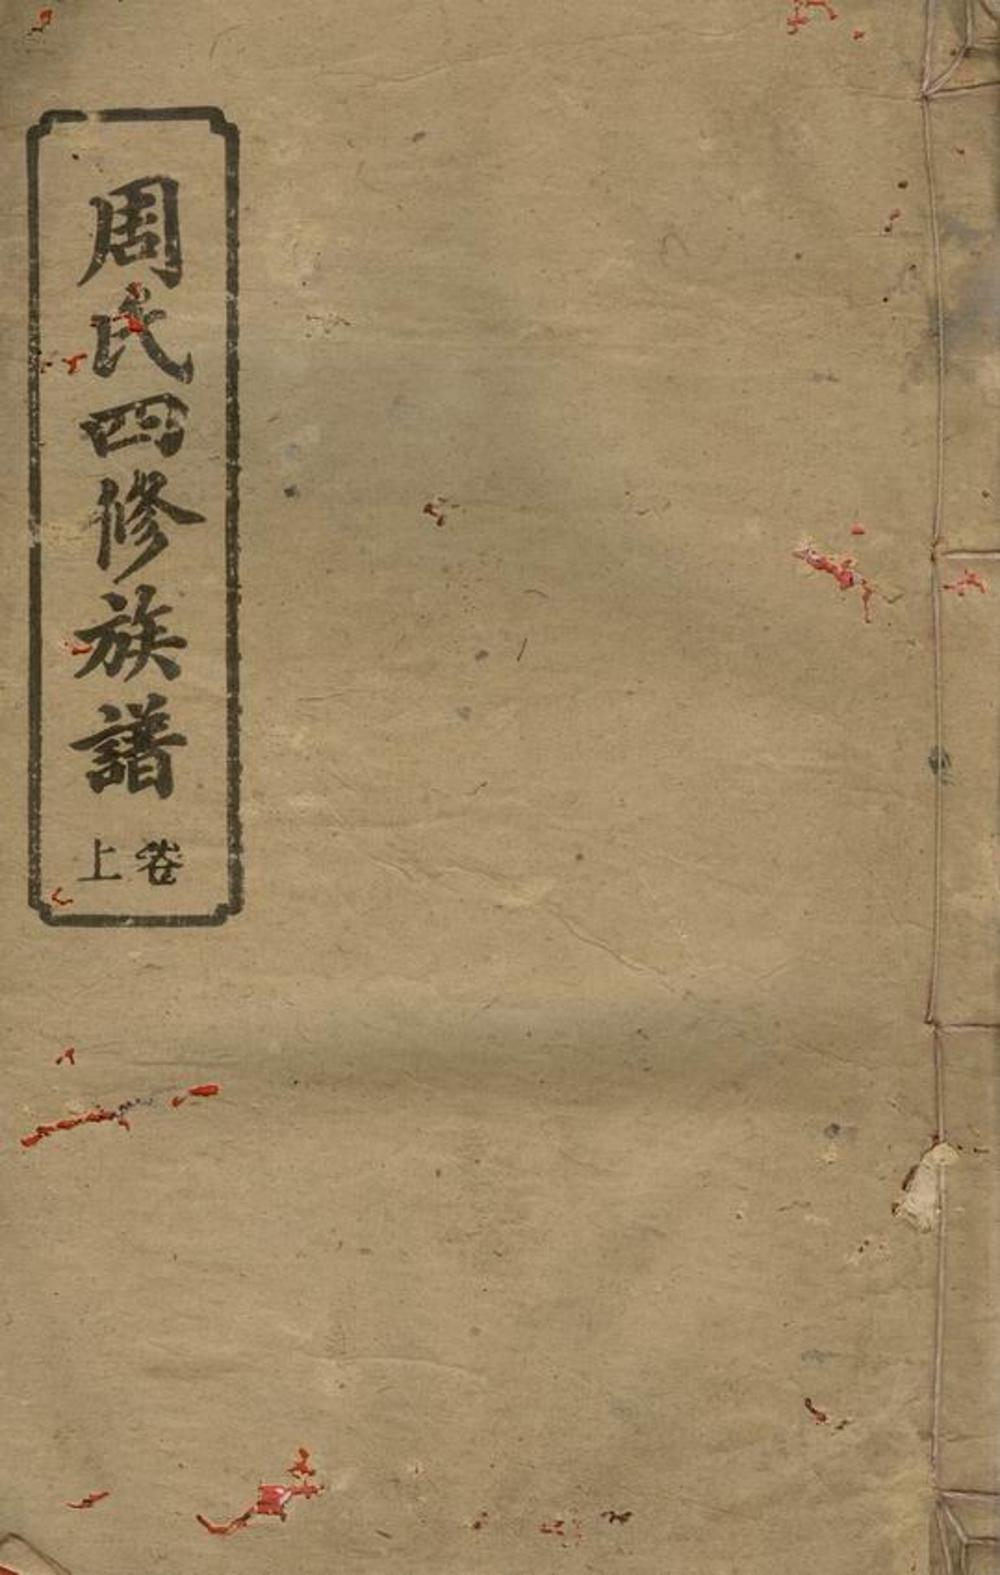 周氏四修族譜
卷上